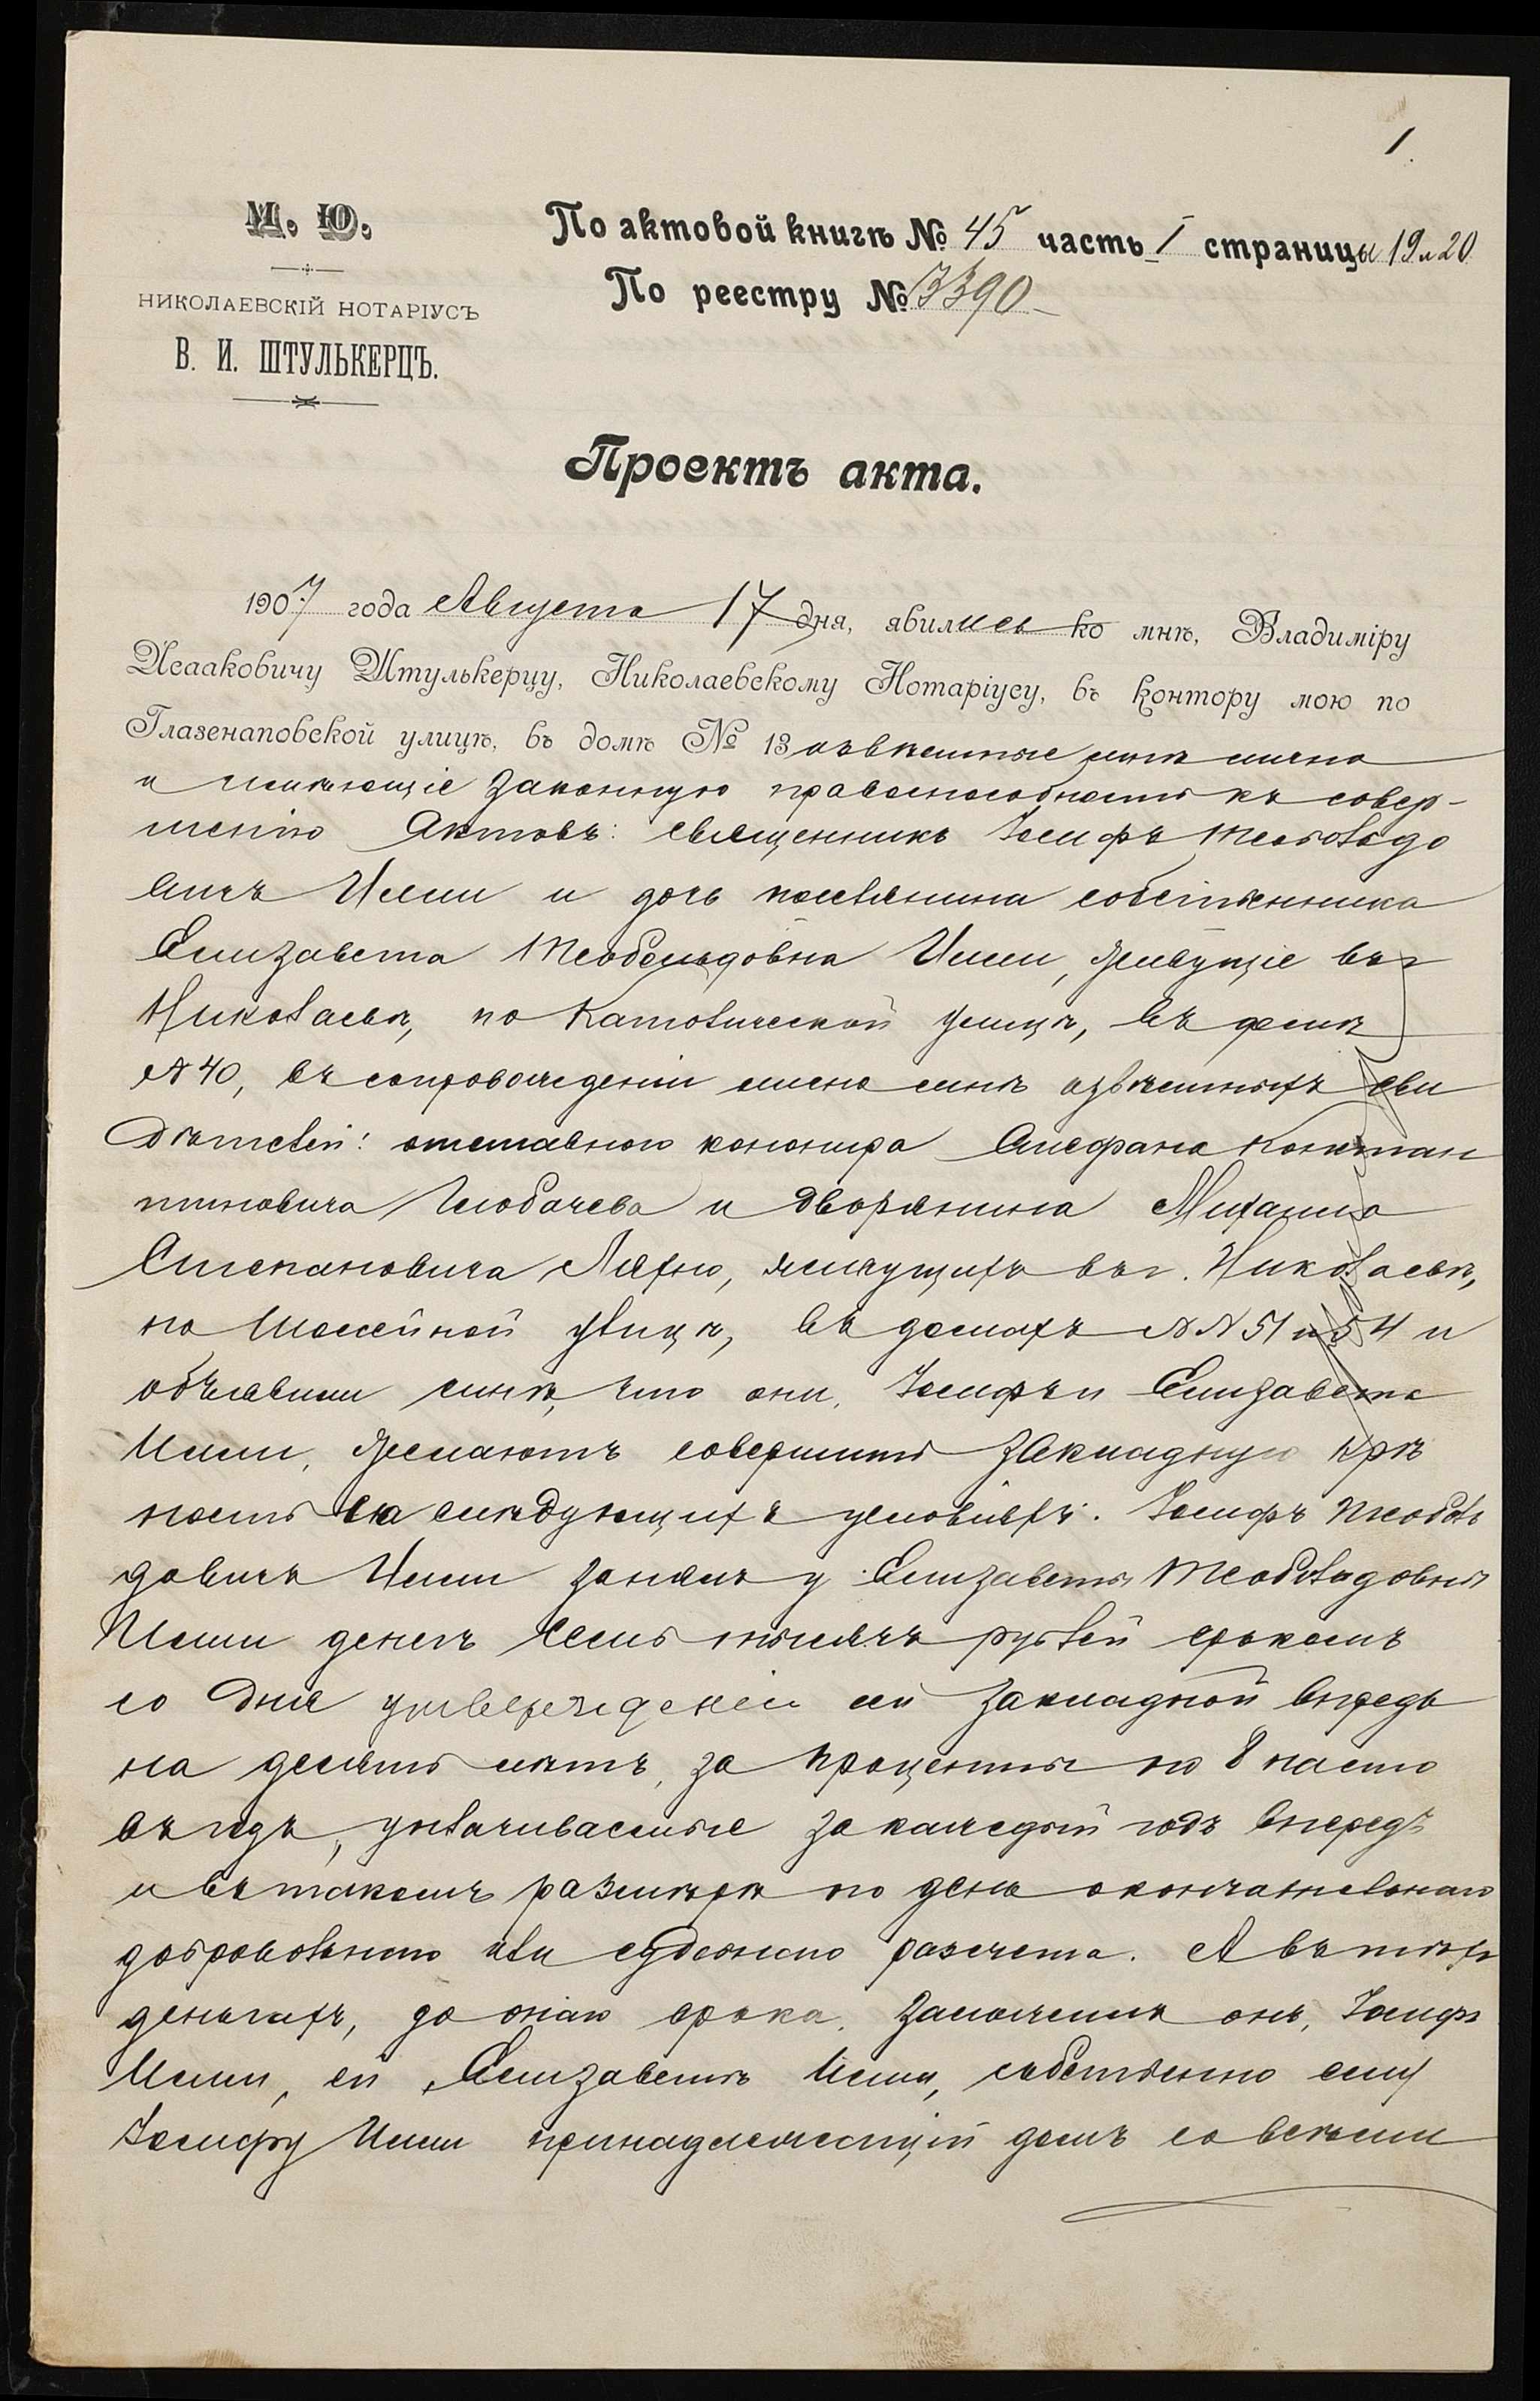 1
М. Ю.
НИКОЛАЕВСКІЙ НОТАРІУСЪ
В. И. ШТУЛЬКЕРЦЪ.
По актовой книгѣ № 45 часть I страницы 19 и 20
По реестру № 3390
Проектъ акта.
1907 года Августа 17 дня, явились ко мнѣ, Владиміру
Исааковичу Штулькерцу, Николаевскому Нотаріусу, въ контору мою по
Глазенаповской улицѣ, въ домѣ № 13 извѣстные мнѣ лично
и имѣющіе законную правоспособность къ совер-
шенію Актовъ: священникъ Іосифъ Теобальдо
вичъ и дочь поселянина собственника
Елизавета Теобальдовна живущіе въ г
Николаевѣ, по Католической улицѣ, въ домѣ
№ 40, въ сопровожденіи лично мнѣ извѣстныхъ сви
дѣтелей: отставного канонира Стефана Констан
тиновича и дворянина Михаила
Степановича живущихъ въ г. Николаевѣ,
по улицѣ, въ домахъ №№ 51 и 54 и
объявили мнѣ, что они, Іосифъ и Елизавета
желаютъ совершить закладную крѣ
пость на слѣдующихъ условіяхъ: Іосифъ Теобаль
довичъ занялъ у Елизаветы Теобальдовны
денегъ семь тысячъ рублей срокомъ
со дня утвержденія сей закладной впредь
на десять лѣтъ, за проценты по 8 на сто
въ годъ, уплачиваемые за каждый годъ впередъ
и въ такомъ размѣрѣ по день окончательнаго
добровольнаго или судебнаго разсчета. А въ тѣхъ
деньгахъ, до онаго срока, заложилъ онъ, Іосифъ
ей, Елизаветѣ собственно ему
Іосифу принадлежащій домъ со всѣми